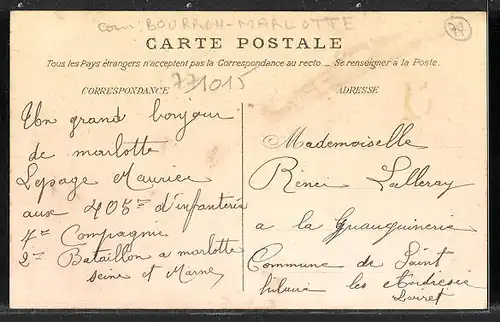 com: BOURRON-MARLOTTE
77
CARTE POSTALE
Tous les Pays étrangers n'acceptent pas la Correspondance au recto. _ Se renseigner à la Poste.
771015
CORRESPONDANCE
Un grand bonjour
de marlotte
Lepage Maurice
aux 405me d'infanterie
4me Compagnie
2me Bataillon a marlotte
seine et Marne
ADRESSE
Mademoiselle
Rénei Lalleray
a la Guauguinerie
Commune de Saint
hilaire les Andresis
Loiret